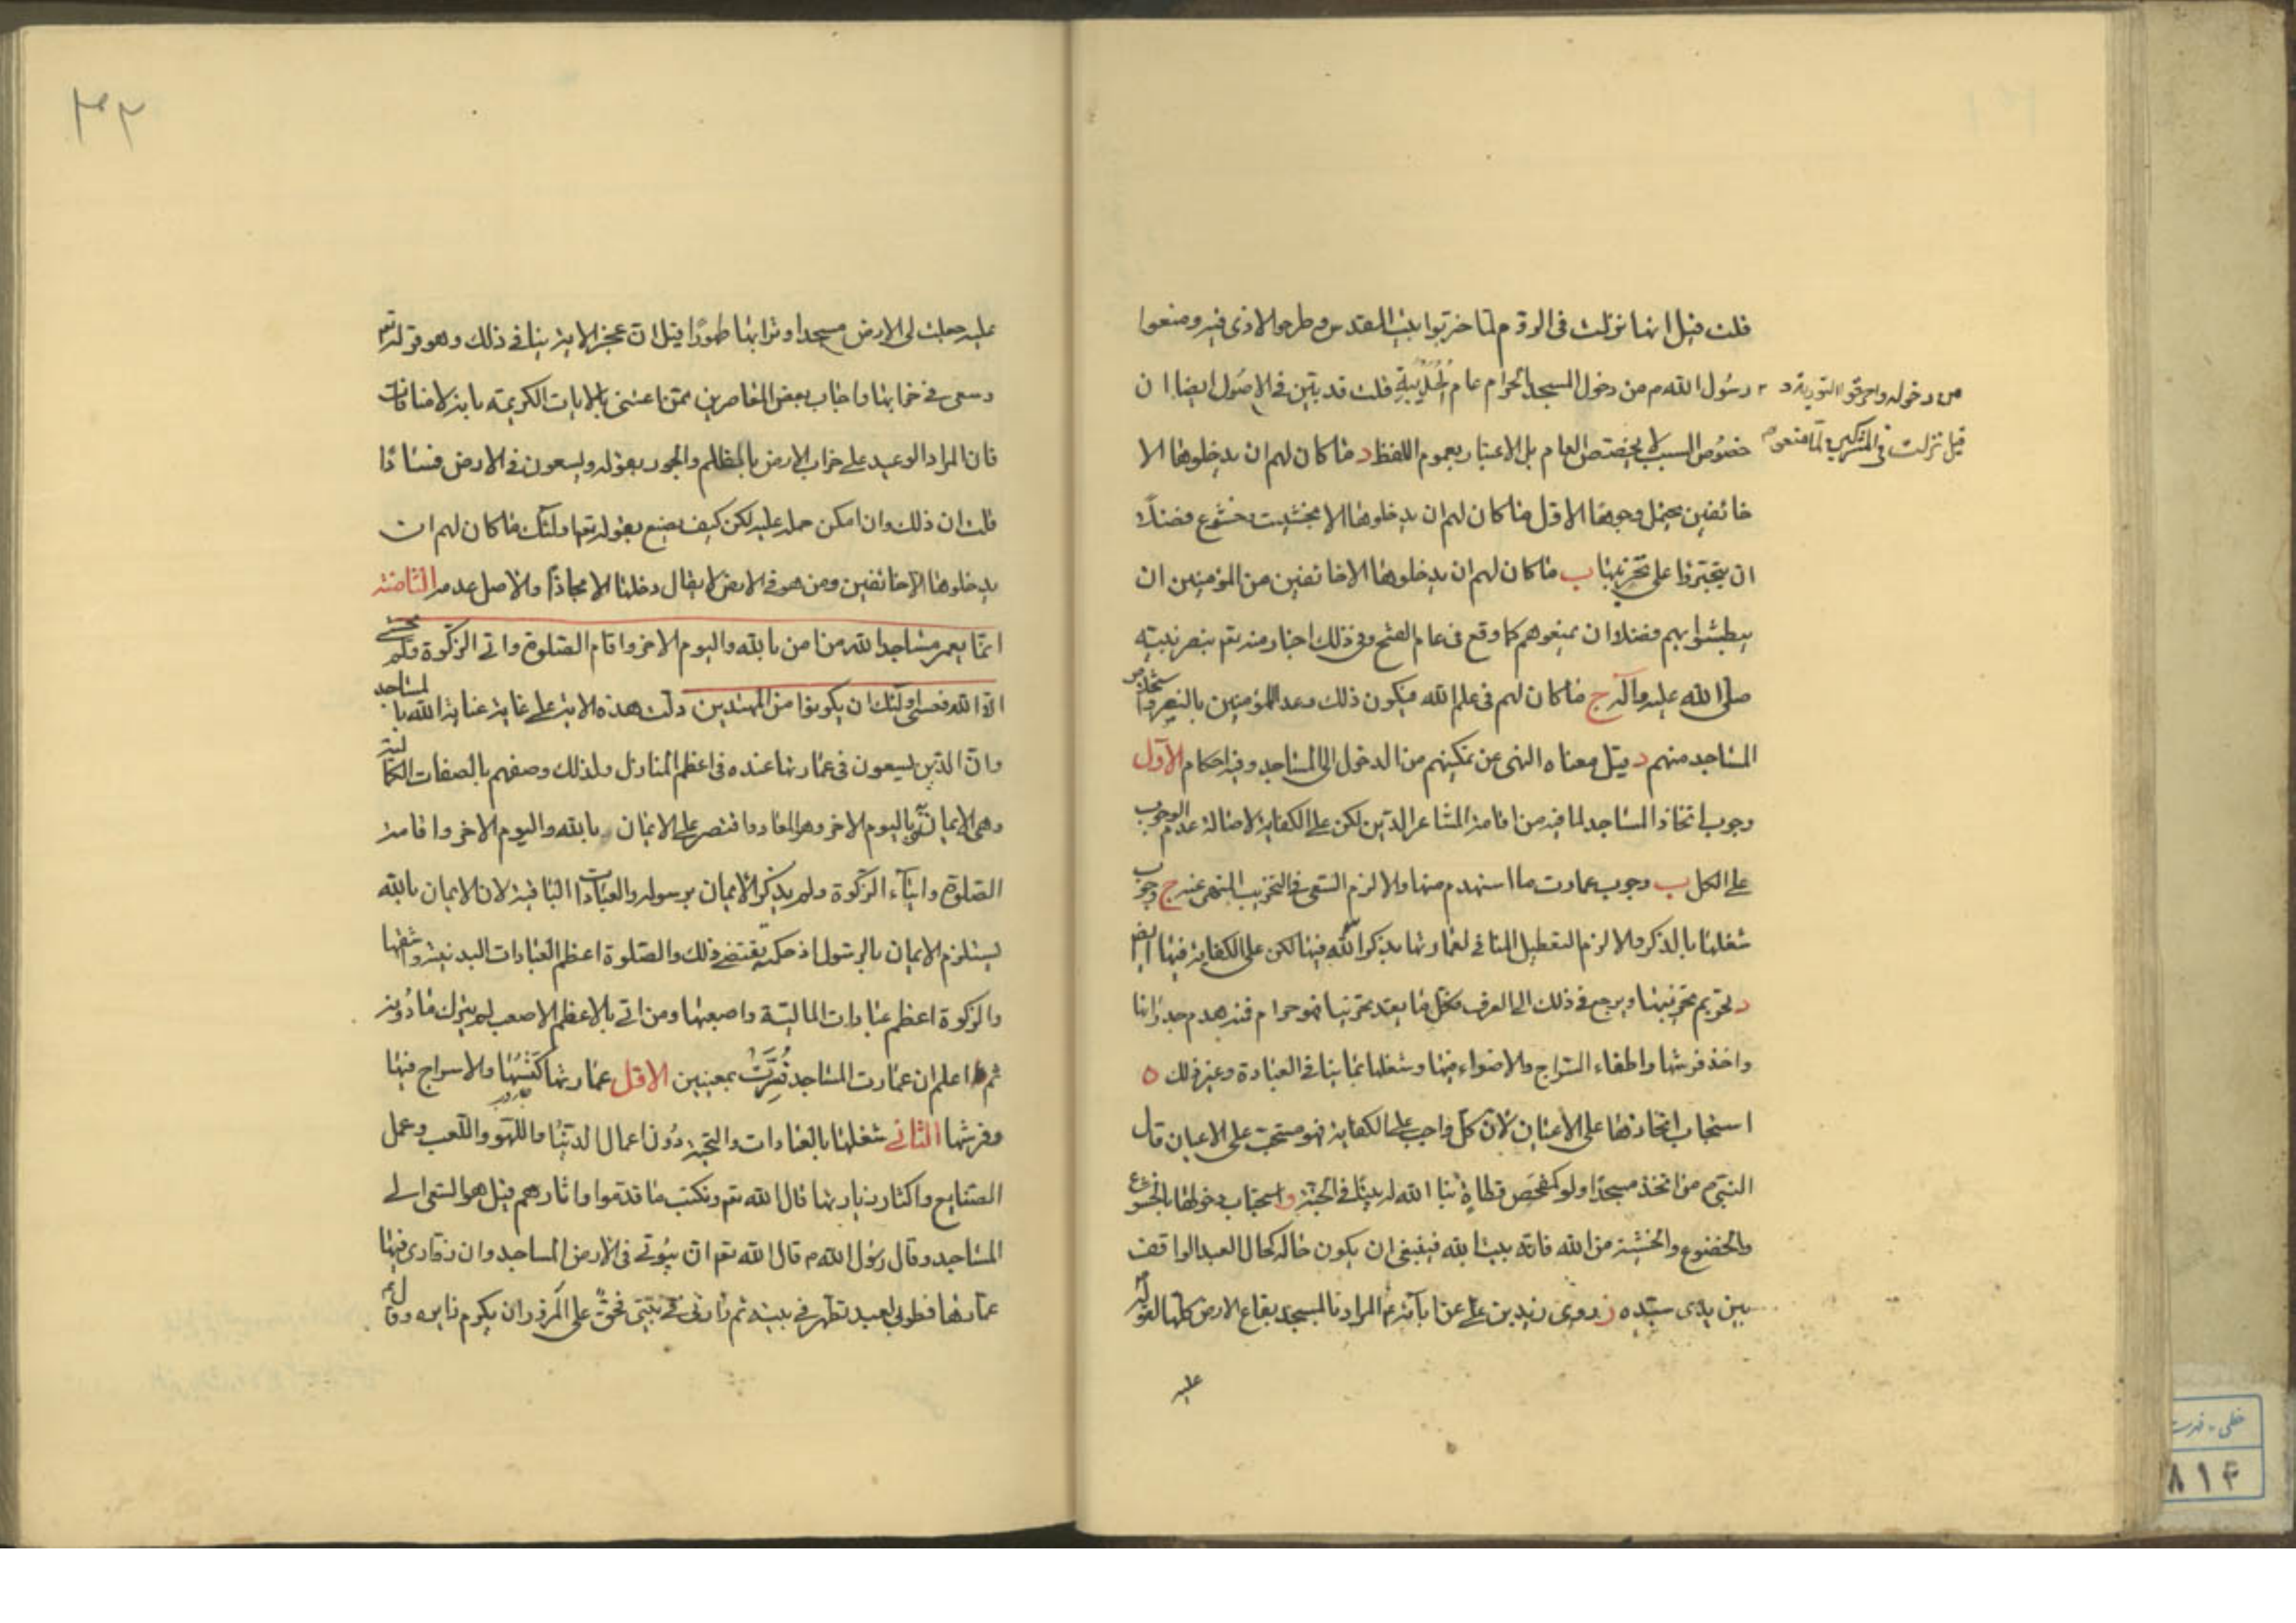 قلت قيل انها نزلت فى الروم لما خربوا بيت المقدس وطرحوا الاذى فيه ومنعوا
من دخوله واحرقوا التورية و
قيل نزلت فى المشركين لما منعوا
رسول الله ص من دخول المسجد الحرام عام الحديبية قلت قد تبين فى الاصول ايضا ان
خصوص السبب لا يخصص العام بل الاعتبار بعموم اللفظ د ما كان لهم ان يدخلوها الا
خائفين يحتمل وجوها الاول ما كان لهم ان يدخلوها الا بخشية وخشوع فضلا
ان يتجتروا على تخريبها ب ما كان لهم ان يدخلوها الا خائفين من المؤمنين ان
يبطشوا بهم فضلا ان يمنعوهم كما وقع فى عام الفتح وفى ذلك اخبار منه تع بنصر نبيه
صلى الله عليه وآله ج ما كان لهم فى علم الله فيكون ذلك وعد للمؤمنين بالنصر واستخلاص
المساجد منهم د قيل معناه النهى عن تمكينهم من الدخول الى المساجد وفيه احكام الاول
وجوب اتخاذ المساجد لما فيه من اقامة المشاعر الدين لكن على الكفاية لاصالة عدم الوجوب
على الكل ب وجوب عمارت ما استهدم منها والا لزم السعى فى التخريب المنهى عنه ج وجوب
شغلها بالذكر والا لزم التعطيل المنافى لعمارتها بذكر الله فيها لكن على الكفاية فيها ايضا
د تحريم تخريبها ويرجع فى ذلك الى العرف فكل ما يعد تخريبا فهو حرام فمنه هدم جدرانها
واخذ فرشها واطفاء السراج والاضواء فيها وشغلها بما ينافى العبادة وغير ذلك ه
استحباب اتخاذها على الاعيان لان كل واجب على الكفاية فهو مستحب على الاعيان قال
النبى ص من اتخذ مسجدا ولو كمفحص قطاة بنا الله له بيتا فى الجنة و استحباب دخولها بالخشوع
والخضوع والخشية من الله فانه بيت الله فينبغى ان يكون حاله كحال العبد الواقف
بين يدى سيده ز روى زيد بن على عن آبائه ع المراد بالمسجد بقاع الارض كلها لقوله
عليه
٣٢
عليه جعلت لى الارض مسجدا وترابها طهورا قيل ان عجز الاية ينافى ذلك وهو قوله تع
وسعى فى خرابها واجاب بعض المعاصرين ممن اعتنى بالايات الكريمة بانه لا منافات
فان المراد الوعيد على خراب الارض بالظلم والجور بقوله ويسعون فى الارض فسادا
قلت ان ذلك وان امكن حمله عليه لكن كيف يصنع بقوله تع اولئك ما كان لهم ان
يدخلوها الا خائفين ومن هو فى الارض لا يقال دخلها الا مجازا والاصل عدمه الثامنة
انما يعمر مساجد الله من امن بالله واليوم الاخر واقام الصلوة واتى الزكوة ولم يخش
الا الله فعسى اولئك ان يكونوا من المهتدين دلت هذه الاية على غاية عناية الله بالمساجد
وان الذين يسعون فى عمارتها عنده فى اعظم المنازل ولذلك وصفهم بالصفات الكمالية
وهى الايمان بالله واليوم الاخر وهو المعاد واقتصر على الايمان بالله واليوم الاخر واقامة
الصلوة وايتاء الزكوة ولم يذكر الايمان برسوله والعبادات الباقية لان الايمان بالله
يستلزم الايمان بالرسول اذ حكمته يقتضى ذلك والصلوة اعظم العبادات البدنية واشقها
والزكوة اعظم عبادات المالية واصعبها ومن اتى بالاعظم الاصعب لم يترك ما دونه
ثم اعلم ان عمارت المساجد فسرت بمعنيين الاول عمارتها كنسها والاسراج فيها
وفرشها الثانى شغلها بالعبادات والتجنب دون اعمال الدنيا واللهو واللعب وعمل
الصنايع واكثار زيارتها قال الله تع ونكتب ما قدموا واثارهم قيل هو السعى الى
المساجد وقال رسول الله ص قال الله تع ان بيوتى فى الارض المساجد وان زوارى فيها
عمارها فطوبى لعبد تطهر فى بيته ثم زارنى فى بيتى فحق على المزور ان يكرم زايره وقال ع
خطى - فهرست
٨١٤